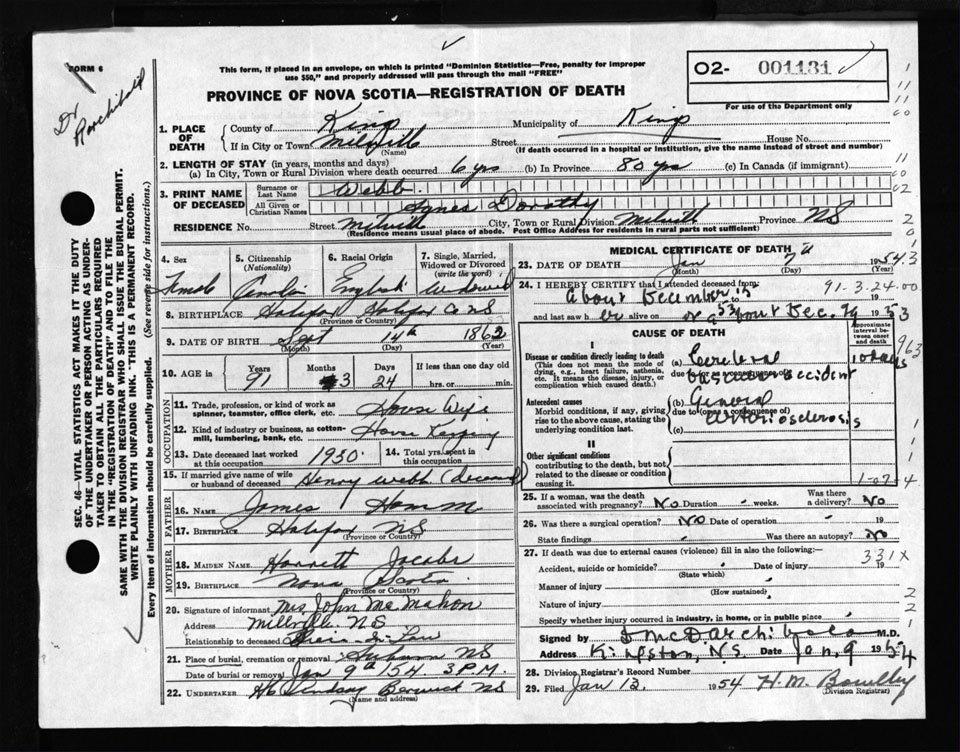 FORM 6
This form, if placed in an envelope, on which is printed "Dominion Statistics—Free, penalty for improper
use $50," and properly addressed will pass through the mail "FREE"
O2- 001131
For use of the Department only
PROVINCE OF NOVA SCOTIA—REGISTRATION OF DEATH
Dr Archibald
SEC. 46—VITAL STATISTICS ACT MAKES IT THE DUTY
OF THE UNDERTAKER OR PERSON ACTING AS UNDER-
TAKER TO OBTAIN ALL THE PARTICULARS REQUIRED
IN THE "REGISTRATION OF DEATH" AND TO FILE THE
SAME WITH THE DIVISION REGISTRAR WHO SHALL ISSUE THE BURIAL PERMIT.
WRITE PLAINLY WITH UNFADING INK. THIS IS A PERMANENT RECORD.
Every item of information should be carefully supplied. (See reverse side for instructions.)
1. PLACE OF DEATH County of Kings Municipality of Kings
If in City or Town Melville Street House No.
(Name) (If death occurred in a hospital or institution, give the name instead of street and number)
2. LENGTH OF STAY (in years, months and days)
(a) In City, Town or Rural Division where death occurred 6 yrs (b) In Province 80 yrs (c) In Canada (if immigrant)
3. PRINT NAME OF DECEASED Surname or Last Name Webb
All Given or Christian Names Agnes Dorothy
RESIDENCE No. Street Melville City, Town or Rural Division Melvill Province NS
(Residence means usual place of abode. Post Office Address for residents in rural parts not sufficient)
4. Sex Female
5. Citizenship (Nationality)
6. Racial Origin English
7. Single, Married, Widowed or Divorced (write the word) Widowed
8. BIRTHPLACE Halifax Halifax Co NS
(Province or Country)
9. DATE OF BIRTH Sept 14th 1862
(Month) (Day) (Year)
10. AGE in Years 91 Months 3 Days 24 If less than one day old hrs. or min.
OCCUPATION
11. Trade, profession, or kind of work as spinner, teamster, office clerk, etc. House Wife
12. Kind of industry or business, as cotton-mill, lumbering, bank, etc. House Kepping
13. Date deceased last worked at this occupation 1930 14. Total yrs. spent in this occupation
15. If married give name of wife or husband of deceased Henry Webb (deceased)
FATHER
16. NAME James Hamm
17. BIRTHPLACE Halifax NS
(Province or Country)
MOTHER
18. MAIDEN NAME Harriett Jacobs
19. BIRTHPLACE Nova Scotia
(Province or Country)
20. Signature of informant Mrs John McMahon
Address Millville NS
Relationship to deceased in Law
21. Place of burial, cremation or removal Auburn NS
Date of burial or removal Jan 9th 54. 3 P.M.
22. UNDERTAKER Lindsay Berwick NS
(Name and address)
MEDICAL CERTIFICATE OF DEATH
23. DATE OF DEATH Jan 7th 1954
(Month) (Day) (Year)
24. I HEREBY CERTIFY that I attended deceased from 91-3-24-00
About December 13 to 19
and last saw her alive on or about Dec. 29 1953
CAUSE OF DEATH
Approximate interval between onset and death
I
Disease or condition directly leading to death
(This does not mean the mode of dying, e.g., heart failure, asthenia, etc. It means the disease, injury, or complication which caused death.)
(a) Cerebral
due to (or as a consequence of)
vascular accident
10 days
Antecedent causes
Morbid conditions, if any, giving rise to the above cause, stating the underlying condition last.
(b) General
due to (or as a consequence of)
arteriosclerosis
(c)
II
Other significant conditions
contributing to the death, but not related to the disease or condition causing it.
25. If a woman, was the death associated with pregnancy? No Duration weeks. Was there a delivery? No
26. Was there a surgical operation? No Date of operation 19
State findings Was there an autopsy? No
27. If death was due to external causes (violence) fill in also the following:— 331X
Accident, suicide or homicide? Date of injury 19
(State which)
Manner of injury
(How sustained)
Nature of injury
Specify whether injury occurred in industry, in home, or in public place
Signed by I McD Archibald M.D.
Address Kingston, N.S. Date Jan. 9 1954
28. Division Registrar's Record Number
29. Filed Jan 13, 1954 H.M.
(Division Registrar)